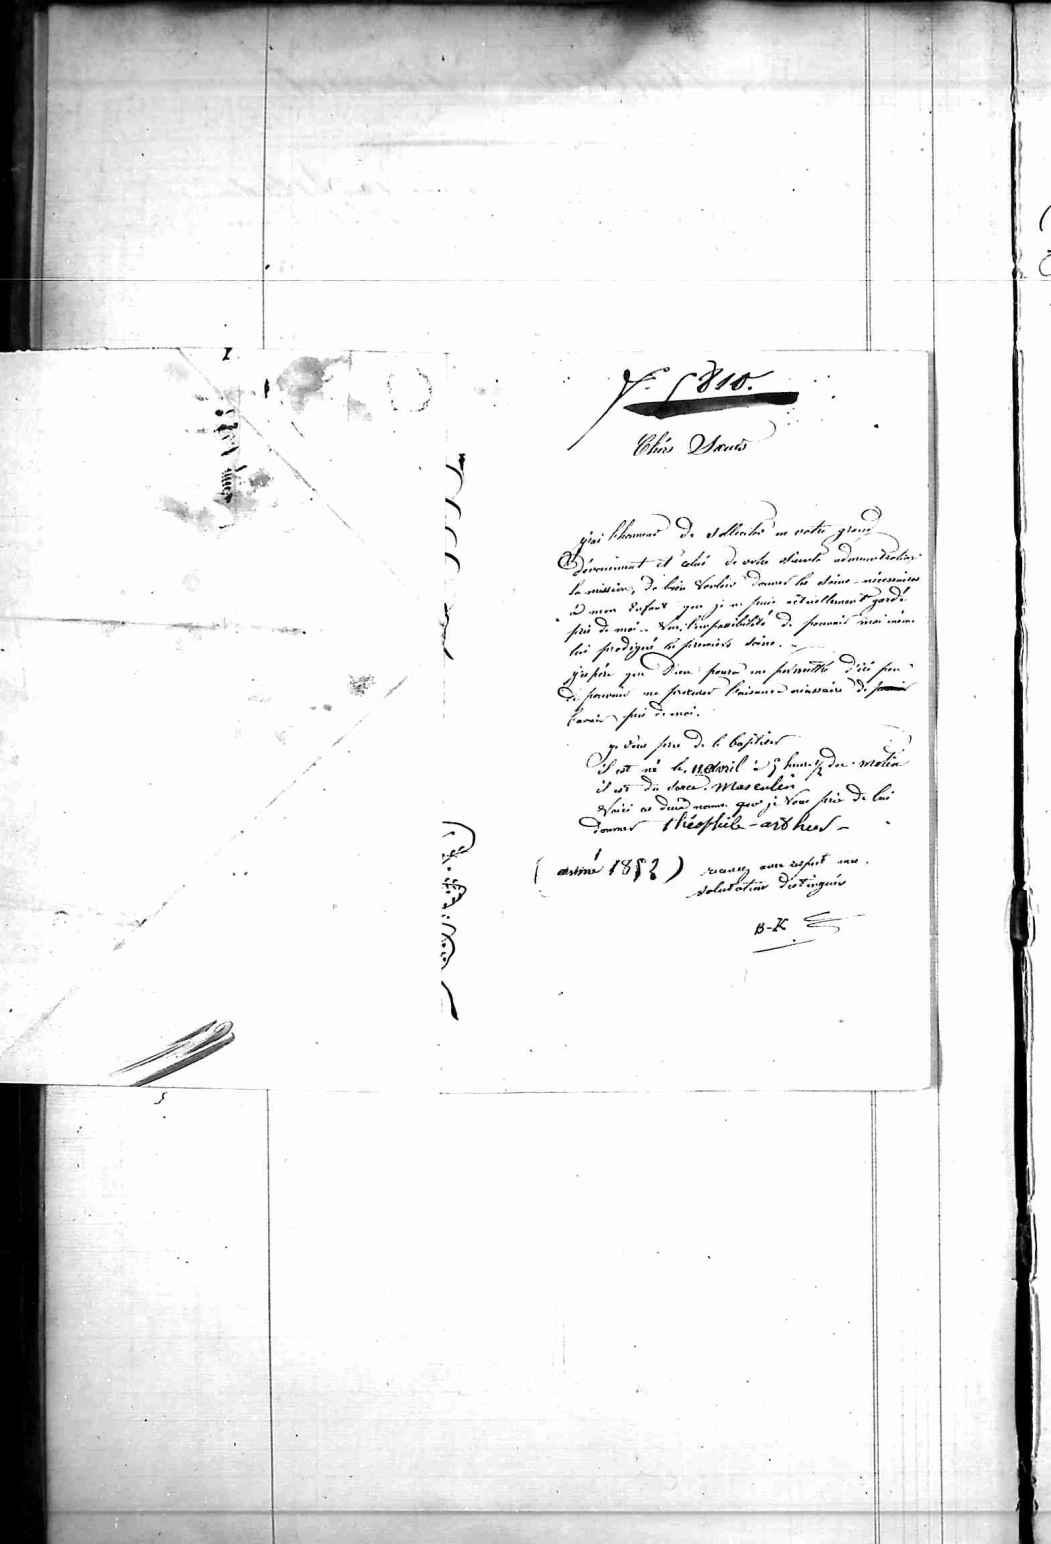 N° 5810.
Chérs Sœurs
j'ai l'honneur de solliciter en votre grand
Dévouement et celui de votre administration
la mission, de bien Vouloir donner les soins nécessaires
a mon Enfant que je ne puis actuellement gardé
près de moi. Vu l'impossibilité de pouvoir moi même
lui prodigué les premiers soins.
j'espère que Dieu poura me permettre d'ici peu
de pouvoir me procurer l'aisance nécessaire de
l'avoir près de moi.
je vous prie de le baptiser
il est né le 11 avril à 5 heure ½ du matin
il est du sexe Masculin
Voici ces deux noms que je Vous prie de lui
donner théophile - arthur -
( année 1852 ) recevez avec respect mes
salutation distinguée
B-K